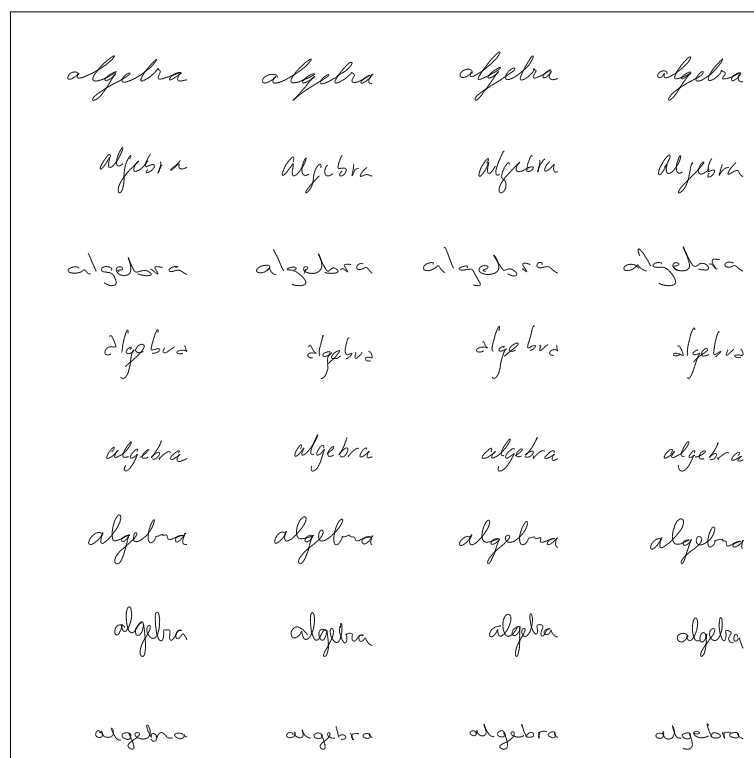 algebra algebra algebra algebra
algebra algebra algebra algebra
algebra algebra algebra algebra
algebra algebra algebra algebra
algebra algebra algebra algebra
algebra algebra algebra algebra
algebra algebra algebra algebra
algebra algebra algebra algebra